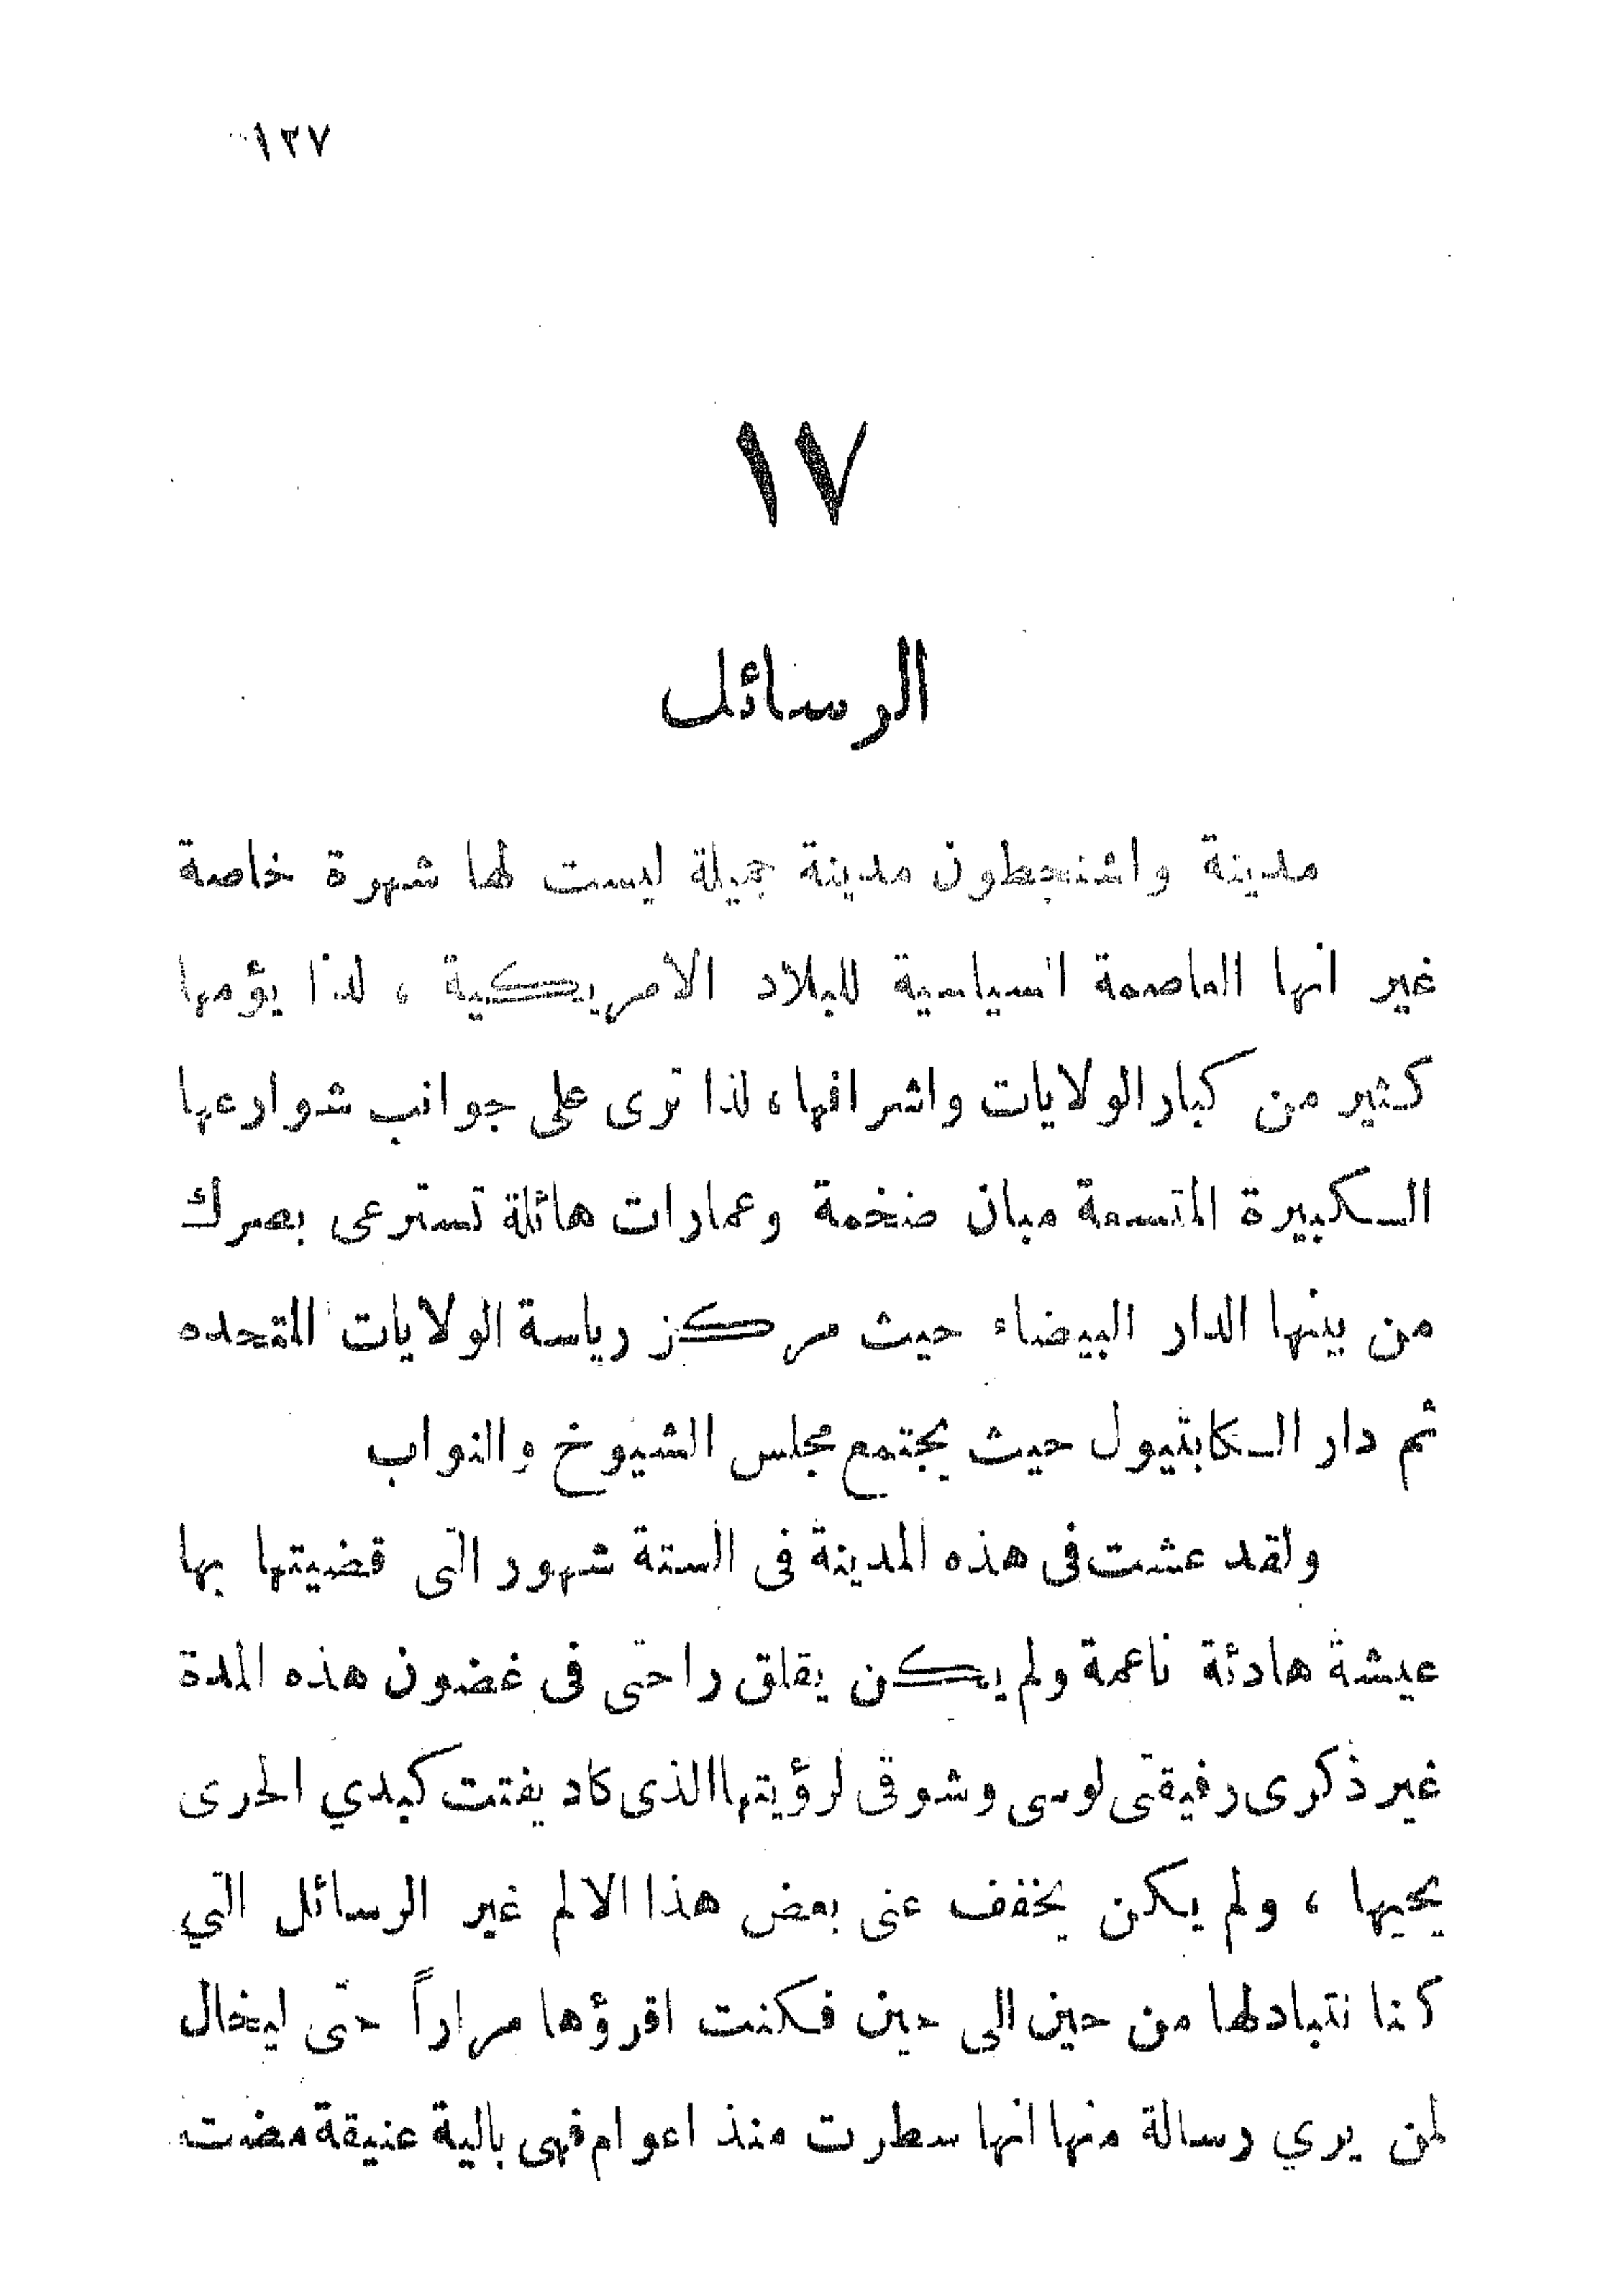 ١٢٧
١٧
الرسائل
مدينة واشنجطون مدينة جميلة ليست لها شهرة خاصة
غير انها العاصمة السياسية للبلاد الامريكية ، لذا يؤمها
كثير من كبار الولايات واشرافها ، لذا ترى على جوانب شوارعها
الكبيرة المتسعة مبان ضخمة وعمارات هائلة تسترعى بصرك
من بينها الدار البيضاء حيث مركز رياسة الولايات المتحده
ثم دار الكابتيول حيث يجتمع مجلس الشيوخ والنواب
ولقد عشت فى هذه المدينة فى الستة شهور التى قضيتها بها
عيشة هادئة ناعمة ولم يكن يقلق راحتى فى غضون هذه المدة
غير ذكرى رفيقتى لوسى وشوقى لرؤيتها الذى كاد يفتت كبدي الحرى
يحيها ، ولم يكن يخفف عنى بعض هذا الالم غير الرسائل التي
كنا نتبادلها من حين الى حين فكنت اقرؤها مراراً حتى ليخال
لمن يري رسالة منها انها سطرت منذ اعوام فهى بالية عنيقة مضت